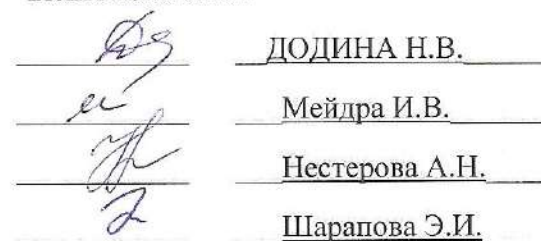 ДОДИНА Н.В.
Мейдра И.В.
Нестерова А.Н.
Шарапова Э.И.